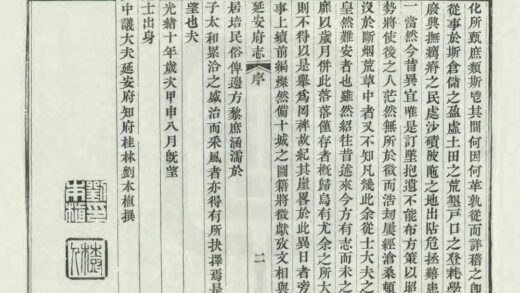 化所甄庶類斯鬯其間何因何革孰從而詳稽之卽
從事於斯倉儲之盈虛土田之荒墾戸口之登耗學
廢興撫瘡痍之民處沙磧陂隴之地出阽危拯難患
一當然今昔異宜唯是訂墜抱遺不能布方策以昭
勢將使後之人茫然無所於徵而浩刼屢經滄桑頓
沒於斷烟荒草中者又不知凡幾此余從士大夫之
皇然難安者也雖然紹往昔述來今方有志而未之
靡以歲月併此落落僅存者槪歸烏有尤余之所大
則不得以是舉爲罔裨故紀其崖畧於此異日者旁
事上續前編燦然備十城之圖籍將徵獻攷文相與
延安府志 序 二
居培民俗俾邊方黎庶涵濡於
子太和累洽之盛治而采風者亦得有所抉擇焉是
望也夫
光緒十年歲次甲申八月旣望
士出身
中議大夫延安府知府桂林劉本植撰